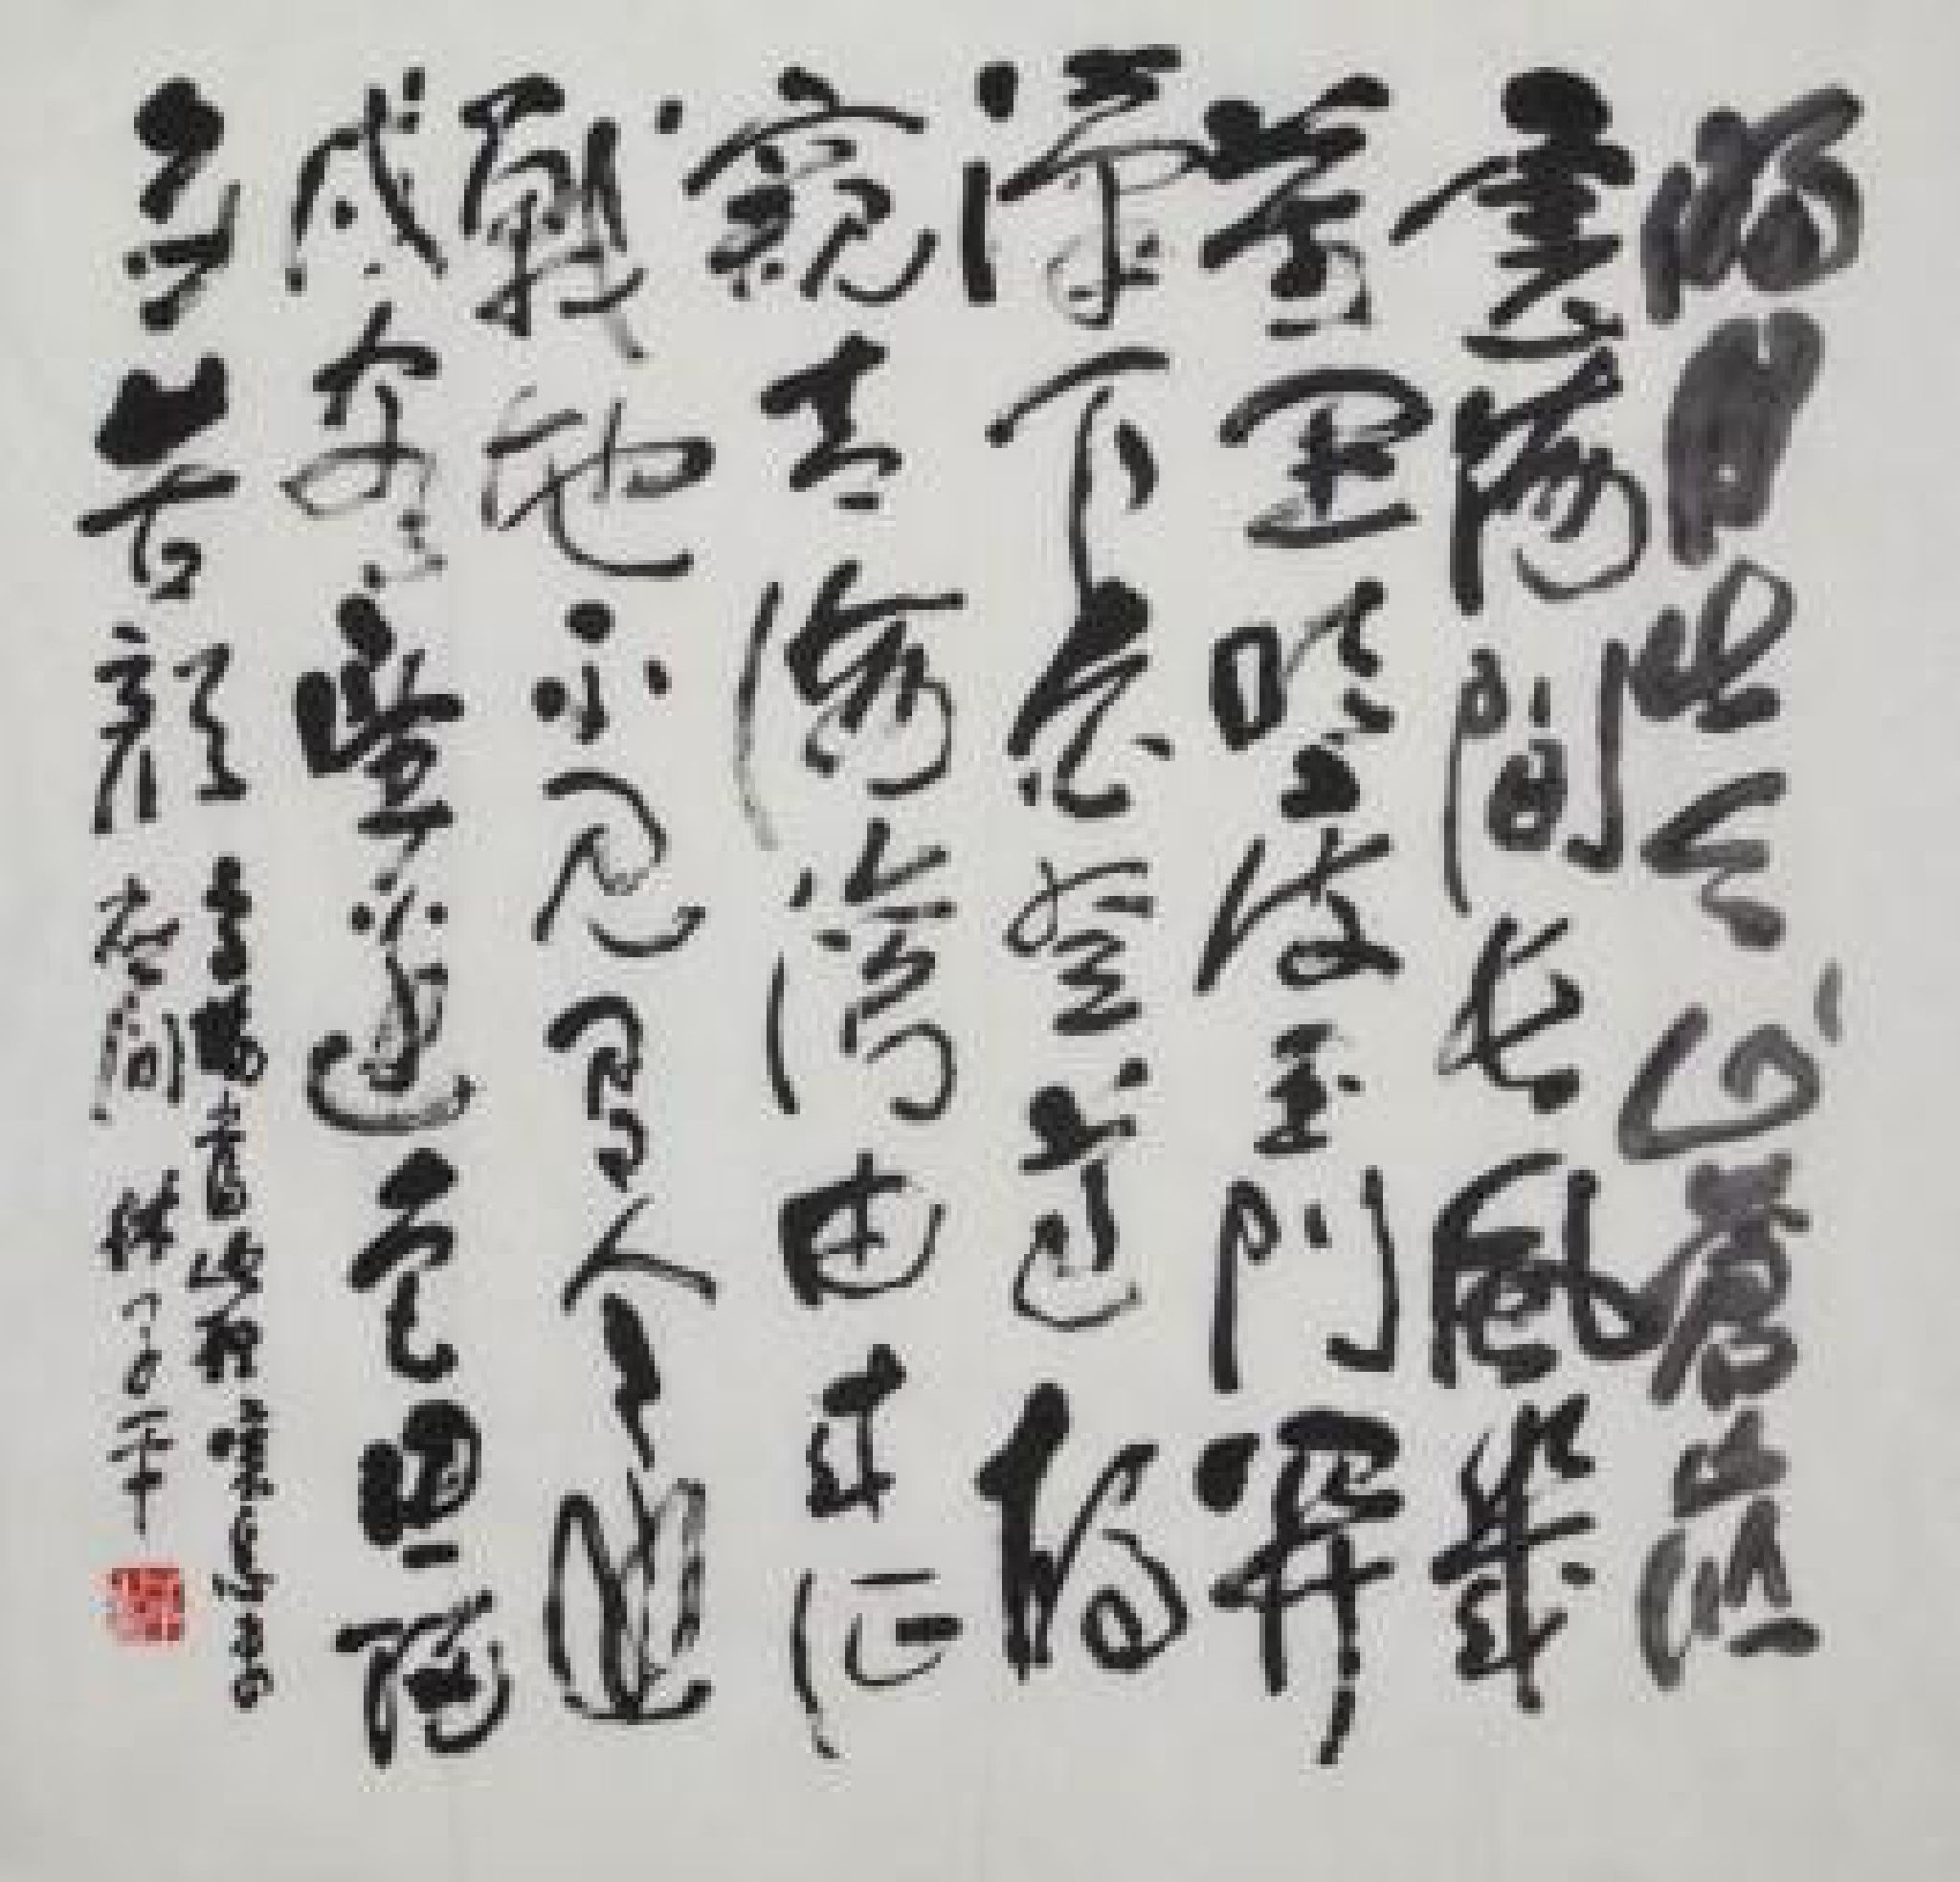 明月出天山蒼茫
雲海間長風幾
萬里吹度玉門關
漢下白登道胡
窺青海灣由來征
戰地不見有人還
戍客望邊色思歸
多苦顏高樓當此夜歎息未
應閒